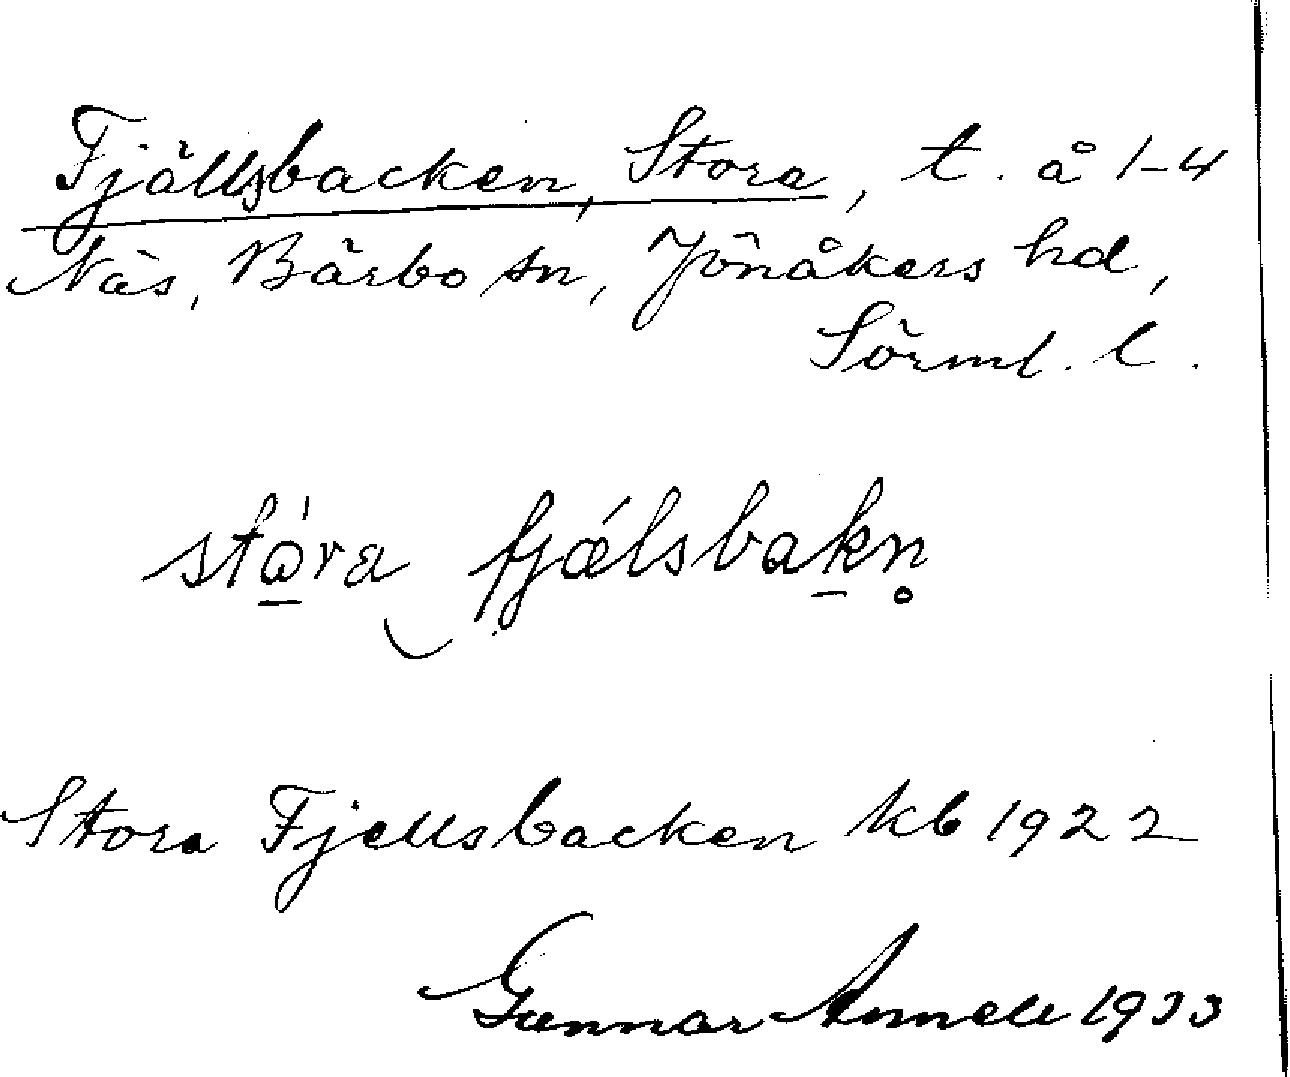 Fjällsbacken, Stora, t. å 1-4
Näs, Bärbo sn, Jönåkers hd,
Sörml. l.
stώ̲ra‿fjǽlsbak̲n̥
Stora Fjellsbacken kb 1922
Gunnar 1933